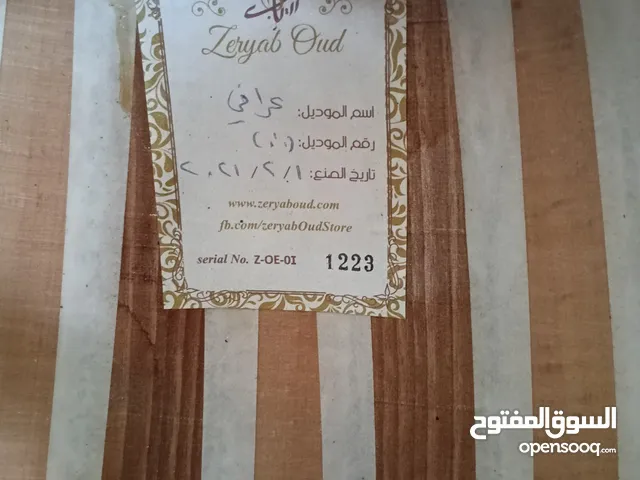 Zeryab Oud
اسم الموديل: عراقي
رقم الموديل:
تاريخ الصنع: ٢٠٢١/٢/١
www.zeryaboud.com
fb.com/zeryabOudStore
serial No. Z-OE-0I 1223
السوق المفتوح
opensooq.com